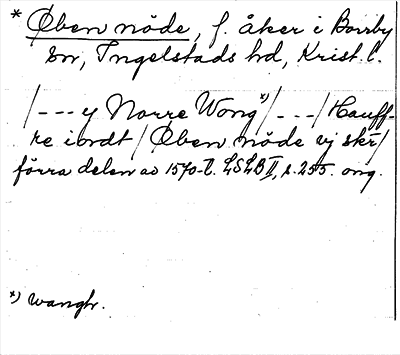 * Øben nöde, f. åker i Borrby
sn, Ingelstads hd, Krist. l.
/--- y Norre Wong *) /---/ Hauff-
re iordt / Øben nöde vj skr /
förra delen av 1570-t. LSLB II, s. 255. ong.
*) wangh.